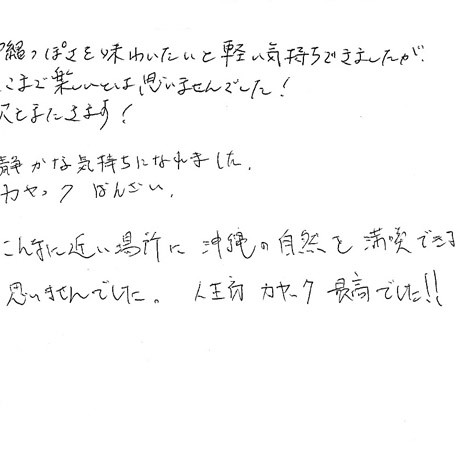 縄っぽさを味わいたいと軽い気持ちできましたが、
こまで楽しいとは思いませんでした!
またきます!
静かな気持ちになれました。
カヤック ばんざい。
こんなに近い場所に 沖縄の自然を 満喫できる
思いませんでした。 カヤック 最高でした!!